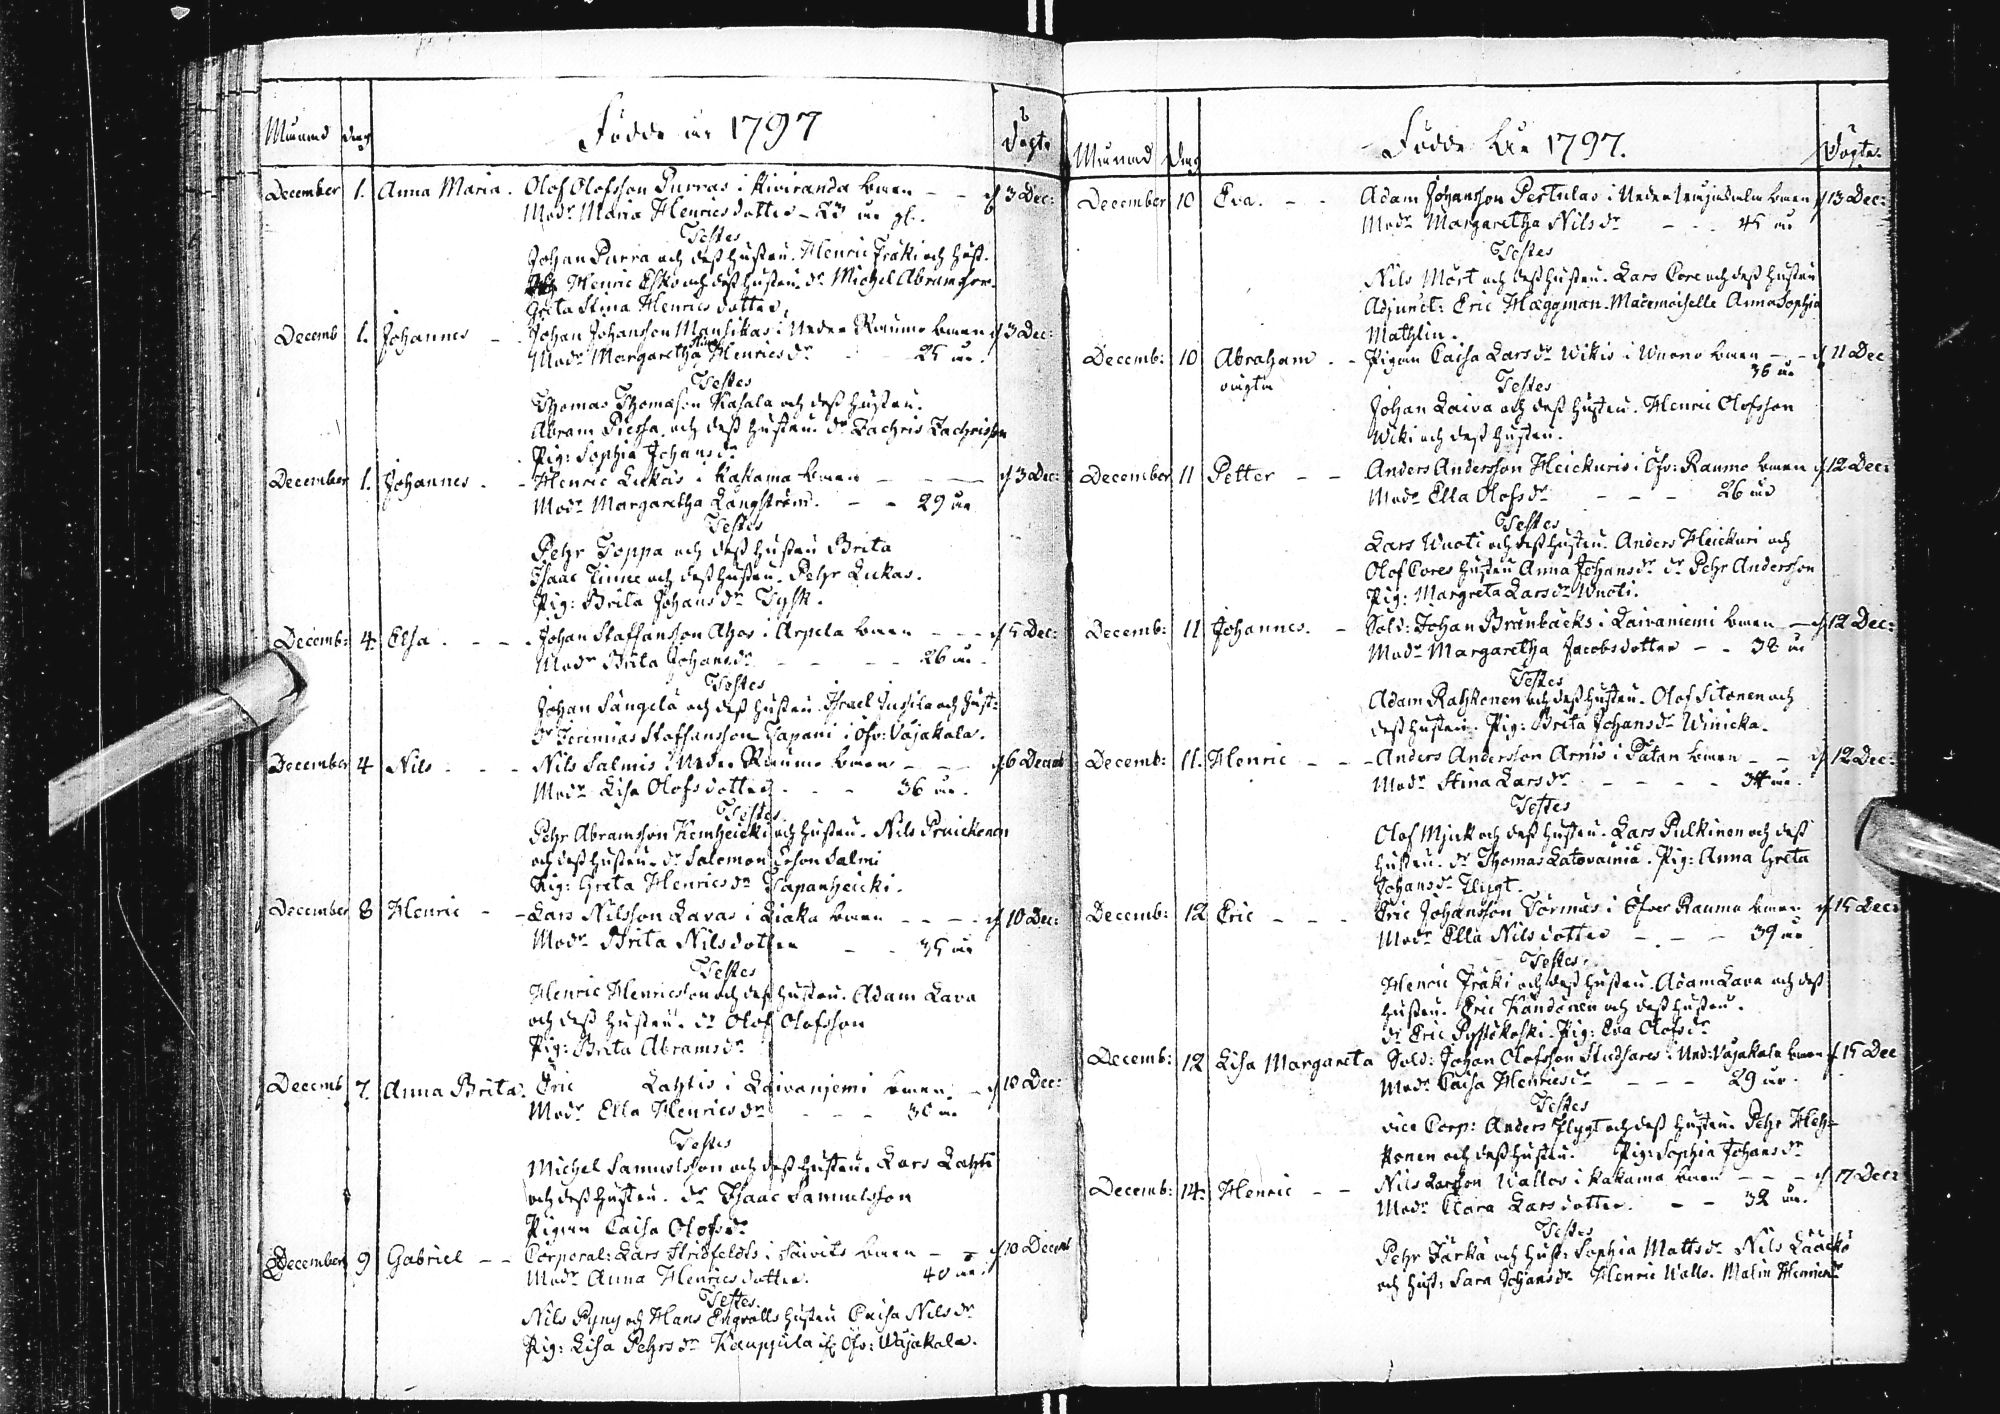 Månad dag Födde år 1797 Döpte
December 1. Anna Maria. Olof Olofsson Purras i Kiviranda barn - - d 3 Dec:
Modr Maria Henricsdotter - år gl.
Testes
Johan Purra och dess hustru. Henric Fräki och hust.
Henric Esko och dess hustru. dr Michel Abramsson.
Greta Stina Henricsdotter.
Decemb 1. Johannes - Johan Johansson Mansikas i Neder Raumo barn d 3 Dec:
Modr Margaretha Stina Henricsdr - - 25 år.
Testes
Thomas Thomasson Kasala och dess hustru.
Abram Piessa och dess hustru. dr Zachris Zachrisson
Pig: Sophia Johansdr
December 1. Johannes - - Henric Lukas i Kakama barn - - - d 3 Dec:
Modr Margaretha Långström. - - 29 år
Testes
Pehr Toppa och dess hustru Brita
Isaac Linne och dess hustru. Pehr Lukas.
Pig: Brita Johansdr Tysk.
Decemb: 4. Elsa. - - Johan Staffansson Ahos i Arpela barn - - d 5 Dec:
Modr Brita Johansdr - - - 26 år.
Testes
Johan Sangelä och dess hustru. Israel Jusila och hust:
Dr Jeremias Staffansson Tapani i Öfv: Vojakala.
December 4 Nils - - - Nils Salmis i Neder Raumo barn - - - d 6 Decemb
Modr Lisa Olofsdotter - - 36 år.
Testes
Pehr Abramsson Kemheicki och hustru. Nils Pruickonen
och dess hustru. dr Salomon Salmi
Pig: Greta Henricsdr Tapanheicki.
December 8 Henric - - Lars Nilsson Lavas i Liaka barn - - - d 10 Dec:
Modr Brita Nilsdotter - - 35 år
Testes
Henric Henricsson och dess hustru. Adam Lava
och dess hustru. dr Olof Olofsson
Pig: Brita Abramsdr
Decemb 7. Anna Brita. Eric Lahtis i Laivanjemi barn. - d 10 Dec:
Modr Ella Henricsdr - - - år
Testes
Michel Samuelsson och dess hustru. Lars Lahti
och dess hustru. dr Isaac Samuelsson
Pigan Caisa Olofsdr
December 9 Gabriel - - Corporal: Lars Stridfeldts i Saivits barn - - d 10 Decemb
Modr Anna Henricsdotter. 40 år.
Testes
Nils Pyny och Hans Engvalls hustru Caisa Nilsdr
Pig: Lisa Pehrsdr Kauppila i Öfv: Wojakala.
Månad Dag Födde År 1797. Döpte
December 10 Eva. - - Adam Johansson Pertulas i Neder barn d 13 Dec:
Modr Margaretha Nilsdr - - 45 år
Testes
Nils Mört och dess hustru. Lars Core och dess hustru
Adjunct: Eric Hæggman. Mademoiselle Anna Sophia
Mathlin.
Decemb: 10 Abraham - - Pigan Caisa Larsdr Wikis i Wuono barn - - d 11 Dec
oägta 36 år
Testes
Johan Laiva och dess hustru. Henric Olofsson
Wiki och dess hustru.
December 11 Petter - - Anders Andersson Heickuris i Öfv: Raumo barn d 12 Dec:
Modr Ella Olofsdr - - - 26 år
Testes
Lars Wuoti och dess hustru. Anders Heickuri och
Olof Cores hustru Anna Johansdr dr Pehr Andersson
Pig: Margreta Larsdr Wuoti.
Decemb: 11 Johannes. - Sold: Johan Brunbäcks i Laivaniemi barn - d 12 Dec:
Modr Margaretha Jacobsdotter - - 38 år
Testes
Adam Rahkonen och dess hustru. Olof Sitonen och
dess hustru. Pig: Brita Johansdr Winicka.
Decemb: 11. Henric - - - Anders Andersson Arnis i Patan barn - - d 12 Dec:
Modr Stina Larsdr - - - - 34 år.
Testes
Olof Mjuk och dess hustru. Lars Pulkinen och dess
hustru. dr Thomas Latovainia. Pig: Anna Greta
Johansdr Flygt.
Decemb: 12 Eric - - - Eric Johansson Törmäs i Öfver Raumo barn d 15 Dec:
Modr Ella Nilsdotter - - - 39 år
Testes
Henric Fräki och dess hustru. Adam Lava och dess
hustru. Eric Kandonen och dess hustru.
dr Eric Pyssökoski. Pig: Eva Olofsdr
Decemb: 12 Lisa Margareta Sold: Johan Olofsson i Ned: Vojakala barn d 15 Dec
Modr Caisa Henricsdr - - - 29 år.
Testes
vice Corp: Anders Flygt och dess hustru. Pehr Heh-
konen och dess hustru. Pig: Sophia Johansdr
Decemb: 14. Henric - - Nils Larsson Wallos i Kakama barn - - - d 17 Dec:
Modr Clara Larsdotter. - - 32 år.
Testes
Pehr Järkä och hust: Sophia Mattsdr Nils Lääckö
och hust: Sara Johansdr Henric Wallo. Malin Henricsdr